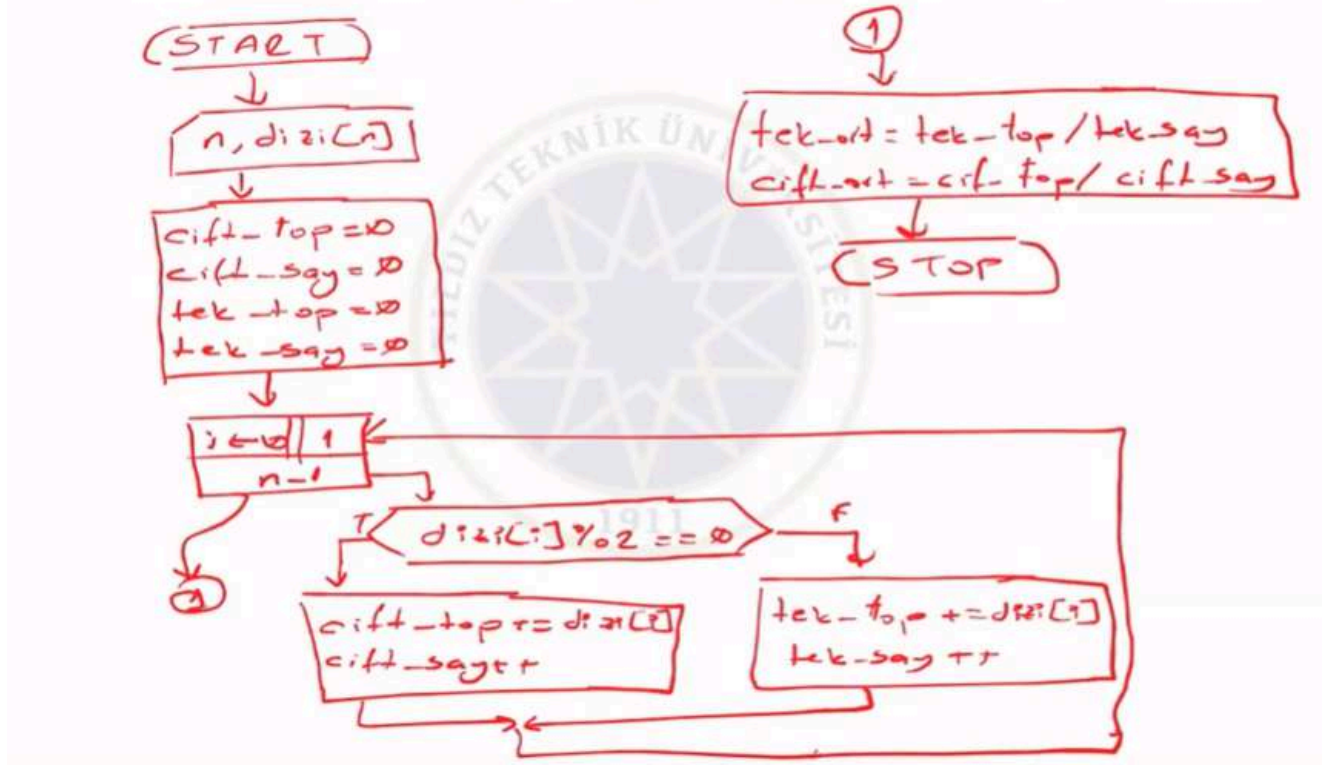 START
n, dizi[n]
cift_top=0
cift_say=0
tek_top=0
tek_say=0
i←0 1
n-1
1
dizi[i]%2==0
T
F
cift_top+=dizi[i]
cift_say++
tek_top+=dizi[i]
tek_say++
1
tek_ort=tek_top/tek_say
cift_ort=cif_top/cift_say
STOP
YILDIZ TEKNİK ÜNİVERSİTESİ
1911